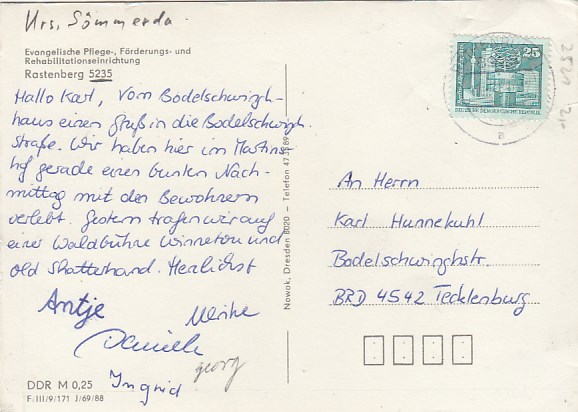 Krs. Sömmerda
Evangelische Pflege-, Förderungs- und
Rehabilitationseinrichtung
Rastenberg 5235
Hallo Karl, Vom Bodelschwingh-
haus einen Gruß in die Bodelschwingh
straße. Wir haben hier im Martins
hof gerade einen bunten Nach-
mittag mit den Bewohnern
verlebt. Gestern trafen wir auf
einer Waldbühne Winnetou und
Old Shatterhand. Herzlichst
Antje
Ulrike
Daniela
georg
Ingrid
DDR M 0,25
F: III/9/171 J/69/88
Nowok, Dresden 8020 — Telefon
25
DEUTSCHE DEMOKRATISCHE REPUBLIK
An Herrn
Karl Hunnekuhl
Bodelschwinghstr.
BRD 4542 Tecklenburg